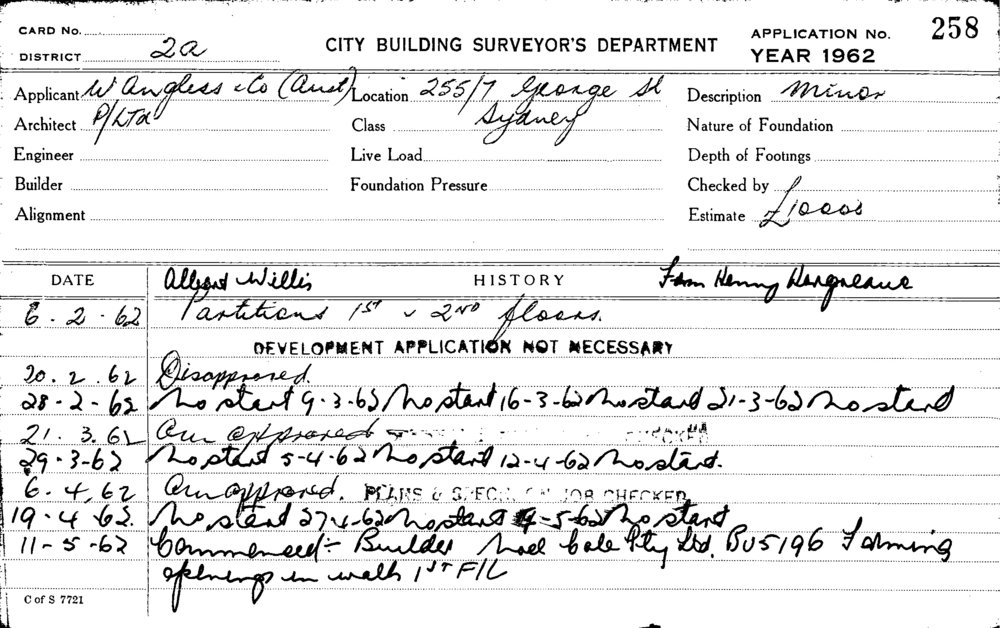 CARD No.
DISTRICT 2a
CITY BUILDING SURVEYOR'S DEPARTMENT
APPLICATION No. 258
YEAR 1962
Applicant W Angliss & Co (Aust) P/Ltd
Location 255/7 George St Sydney
Description Minor
Architect
Class
Nature of Foundation
Engineer
Live Load
Depth of Footings
Builder
Foundation Pressure
Checked by
Alignment
Estimate £1000
DATE
Albert Willis
HISTORY
Henry Hargreave
6.2.62 Partitions 1st & 2nd floors.
DEVELOPMENT APPLICATION NOT NECESSARY
20.2.62 Disapproved.
28-2-62 No start 9-3-62 No start 16-3-62 No start 21-3-62 No start
21.3.62 approved CHECKED
29-3-62 No start 5-4-62 No start 12-4-62 No start.
6.4.62 approved. PLANS & SPECN. ON JOB CHECKED
19-4-62. No start 27-4-62 No start 4-5-62 No start
11-5-62 Commenced:- Builder Noel Cale Pty Ltd. BU5196 Forming
openings in walls 1st F/L
C of S 7721